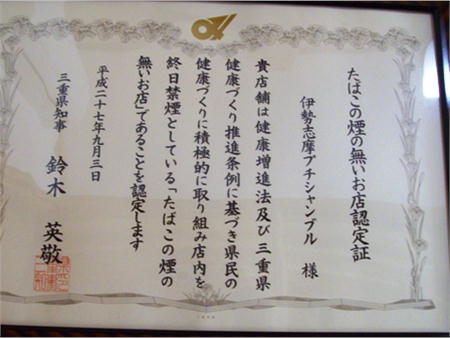 たばこの煙の無いお店認定証
伊勢志摩プチシャンブル 様
貴店舗は健康増進法及び三重県
健康づくり推進条例に基づき県民の
健康づくりに積極的に取り組み店内を
終日禁煙としている「たばこの煙の
無いお店」であることを認定します
平成二十七年九月三日
三重県知事 鈴木 英敬